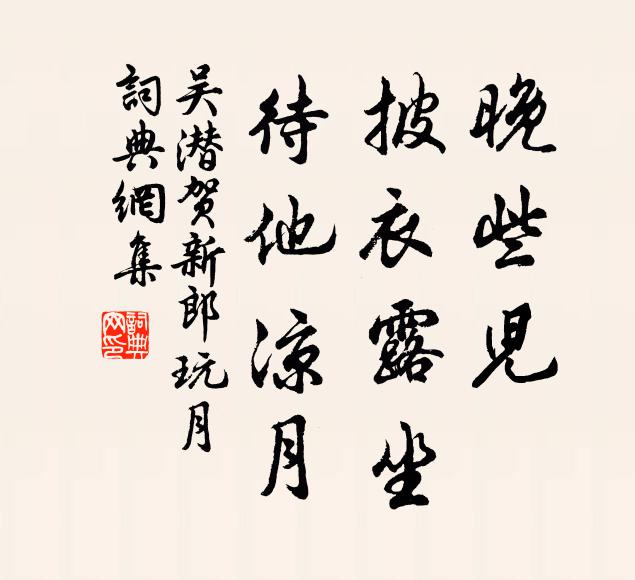 晚些兒
披衣露坐
待他凉月
吴潛贺新郎 玩月
詞典網集
詞典網印